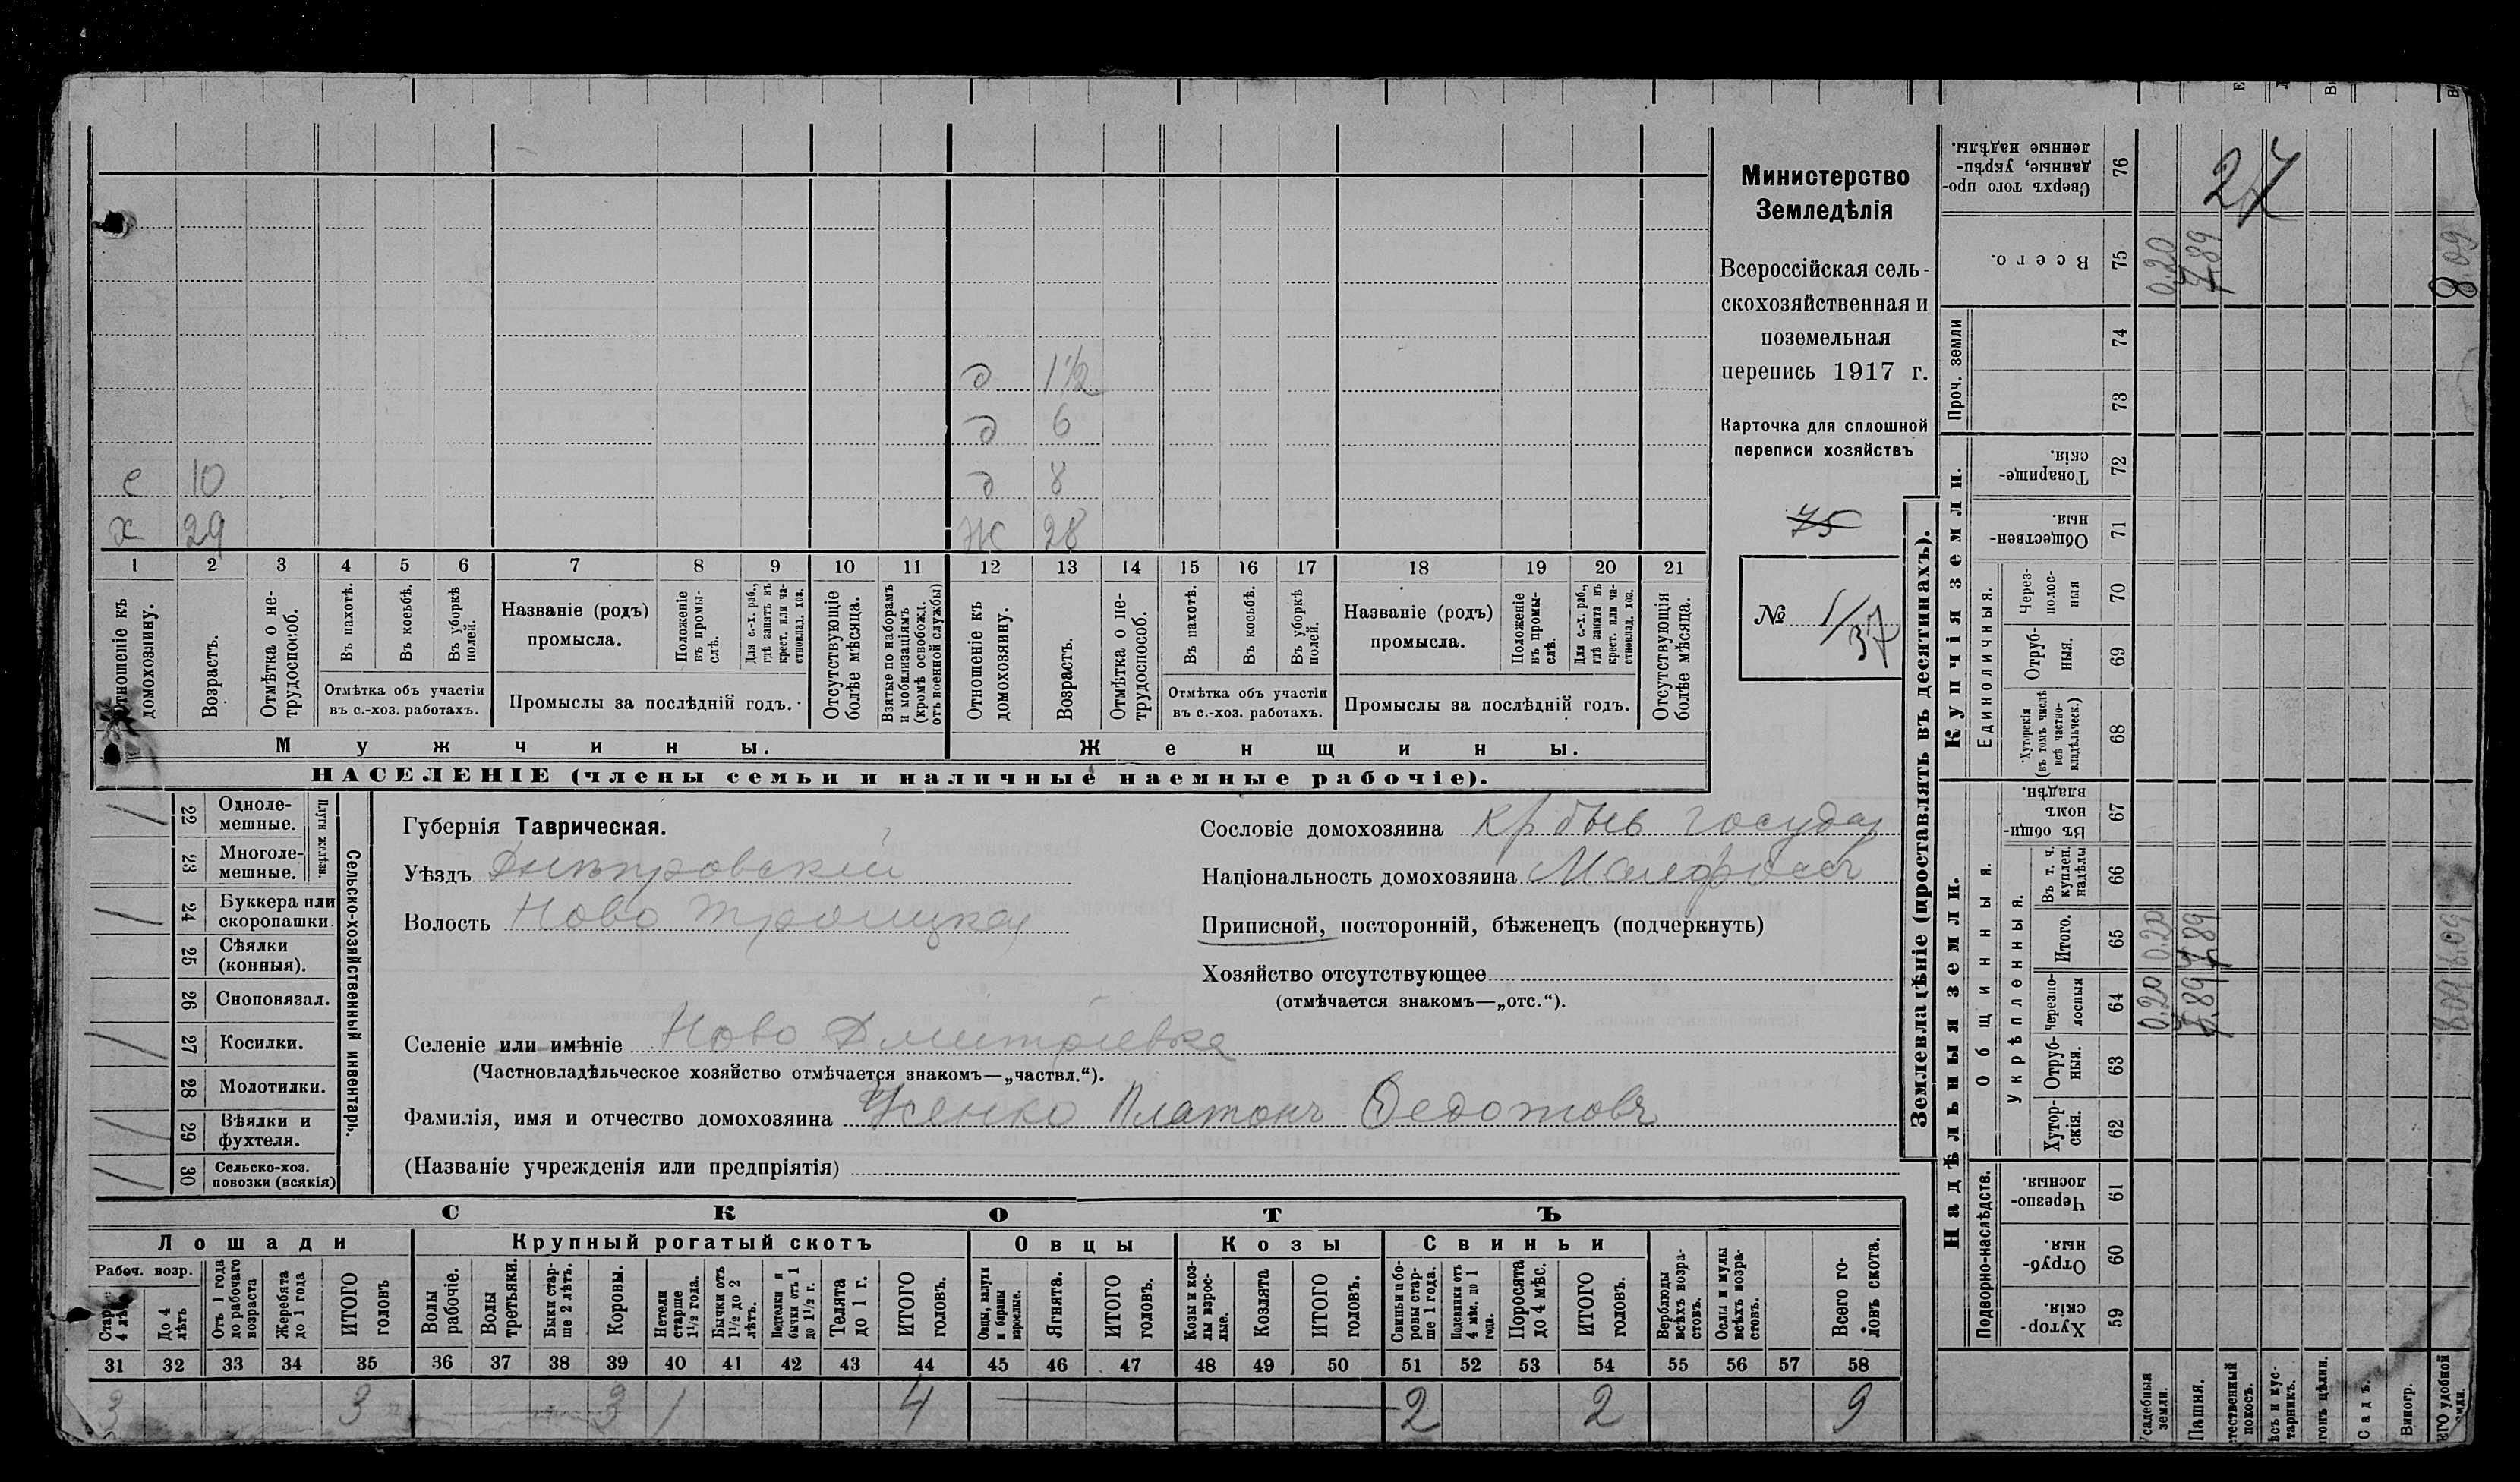 д 1½
д 6
с 10 д 8
х 29 Ж 28
1 2 3 4 5 6 7 8 9 10 11 12 13 14 15 16 17 18 19 20 21
Отношеніе къ домохозяину.
Возрастъ.
Отмѣтка о не-трудоспособ.
Въ пахотѣ.
Въ косьбѣ.
Въ уборкѣ полей.
Отмѣтка объ участіи въ с.-хоз. работахъ.
Названіе (родъ) промысла.
Положеніе въ промы-слѣ.
Для с.-х. раб., гдѣ занятъ въ крест. или ча-стновлад. хоз.
Промыслы за послѣдній годъ.
Отсутствующіе болѣе мѣсяца.
Взятые по наборамъ и мобилизаціямъ (кромѣ освобожд. отъ военной службы)
Отношеніе къ домохозяину.
Возрастъ.
Отмѣтка о не-трудоспособ.
Въ пахотѣ.
Въ косьбѣ.
Въ уборкѣ полей.
Отмѣтка объ участіи въ с.-хоз. работахъ.
Названіе (родъ) промысла.
Положеніе въ промы-слѣ.
Для с.-х. раб., гдѣ занята въ крест. или ча-стновлад. хоз.
Промыслы за послѣдній годъ.
Отсутствующія болѣе мѣсяца.
Мужчины. Женщины.
НАСЕЛЕНІЕ (члены семьи и наличные наемные рабочіе).
Министерство
Земледѣлія
Всероссійская сель-
скохозяйственная и
поземельная
перепись 1917 г.
Карточка для сплошной
переписи хозяйствъ
75
№ 1/37
Сельско-хозяйственный инвентарь.
Плуги желѣзн.
22 Одноле-мешные.
23 Многоле-мешные.
24 Буккера или скоропашки.
25 Сѣялки (конныя).
26 Сноповязал.
27 Косилки.
28 Молотилки.
29 Вѣялки и фухтеля.
30 Сельско-хоз. повозки (всякія)
Губернія Таврическая.
Уѣздъ Днѣпровскій
Волость Ново Троицкая
Сословіе домохозяина кр бывъ государ
Національность домохозяина Малороссъ
Приписной, посторонній, бѣженецъ (подчеркнуть)
Хозяйство отсутствующее
(отмѣчается знакомъ—„отс.“).
Селеніе или имѣніе Ново Дмитріевка
(Частновладѣльческое хозяйство отмѣчается знакомъ—„частвл.“).
Фамилія, имя и отчество домохозяина Усенко Платонъ Федотовъ
(Названіе учрежденія или предпріятія)
СКОТЪ
Лошади Крупный рогатый скотъ Овцы Козы Свиньи
Рабоч. возр.
До 4 лѣтъ
Отъ 1 года до рабочаго возраста
Жеребята до 1 года
ИТОГО головъ
Волы рабочіе.
Волы третьяки.
Быки стар-ше 2 лѣтъ.
Коровы.
Нетели старше 1½ года.
Бычки отъ 1½ до 2 лѣтъ.
Подтелки и бычки отъ 1 до 1½ г.
Телята до 1 г.
ИТОГО головъ.
Овцы, валухи и бараны взрослые.
Ягнята.
ИТОГО головъ.
Козы и коз-лы взрос-лые.
Козлята
ИТОГО головъ.
Свиньи и бо-ровы стар-ше 1 года.
Подсвинки отъ 4 мѣс. до 1 года.
Поросята до 4 мѣс.
ИТОГО головъ.
Верблюды всѣхъ возра-стовъ.
Ослы и мулы всѣхъ возра-стовъ.
Всего го-ловъ скота.
31 32 33 34 35 36 37 38 39 40 41 42 43 44 45 46 47 48 49 50 51 52 53 54 55 56 57 58
3 3 3 1 4 2 2 9
Землевладѣніе (проставлять въ десятинахъ).
Купчія земли.
Надѣльныя земли.
Сверхъ того про-данные, укрѣп-ленные надѣлы. 76 27
Всего. 75 0,20 7,89 8,09
Проч. земли 74 73
Товарище-скія. 72
Обществен-ныя. 71
Единоличныя.
Через-полос-ныя 70
Отруб-ныя. 69
Хуторскія (въ томъ числѣ всѣ частно-владѣльческ.) 68
Общинныя.
Въ общин-номъ владѣн. 67
Укрѣпленныя.
Въ т. ч. куплен. надѣлы 66
Итого. 65 0.20 7,89 8.09
Черезпо-лосныя 64 0,20 7,89 8.09
Отруб-ныя. 63
Хутор-скія. 62
Подворно-наслѣдств.
Черезпо-лосныя. 61
Отруб-ныя. 60
Хутор-скія. 59
Пашня.
Садъ.
Виногр.